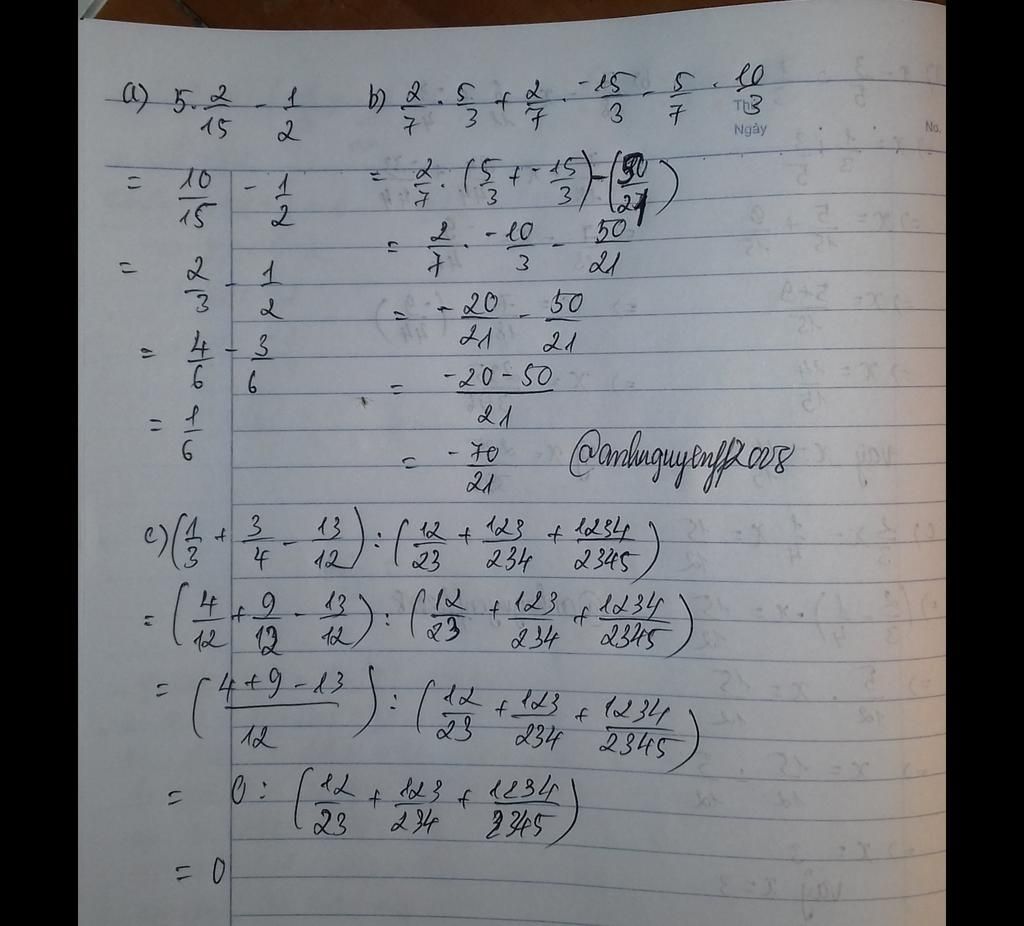 a) 5 . 2/15 - 1/2
= 10/15 - 1/2
= 2/3 - 1/2
= 4/6 - 3/6
= 1/6
b) 2/7 . 5/3 + 2/7 . -15/3 - 5/7 . 10/3
Thứ
Ngày
No.
= 2/7 . (5/3 + -15/3) - (50/21)
= 2/7 . -10/3 - 50/21
= -20/21 - 50/21
= -20-50/21
= -70/21
c) (1/3 + 3/4 - 13/12) : (12/23 + 123/234 + 1234/2345)
= (4/12 + 9/12 - 13/12) : (12/23 + 123/234 + 1234/2345)
= (4+9-13/12) : (12/23 + 123/234 + 1234/2345)
= 0 : (12/23 + 123/234 + 1234/2345)
= 0